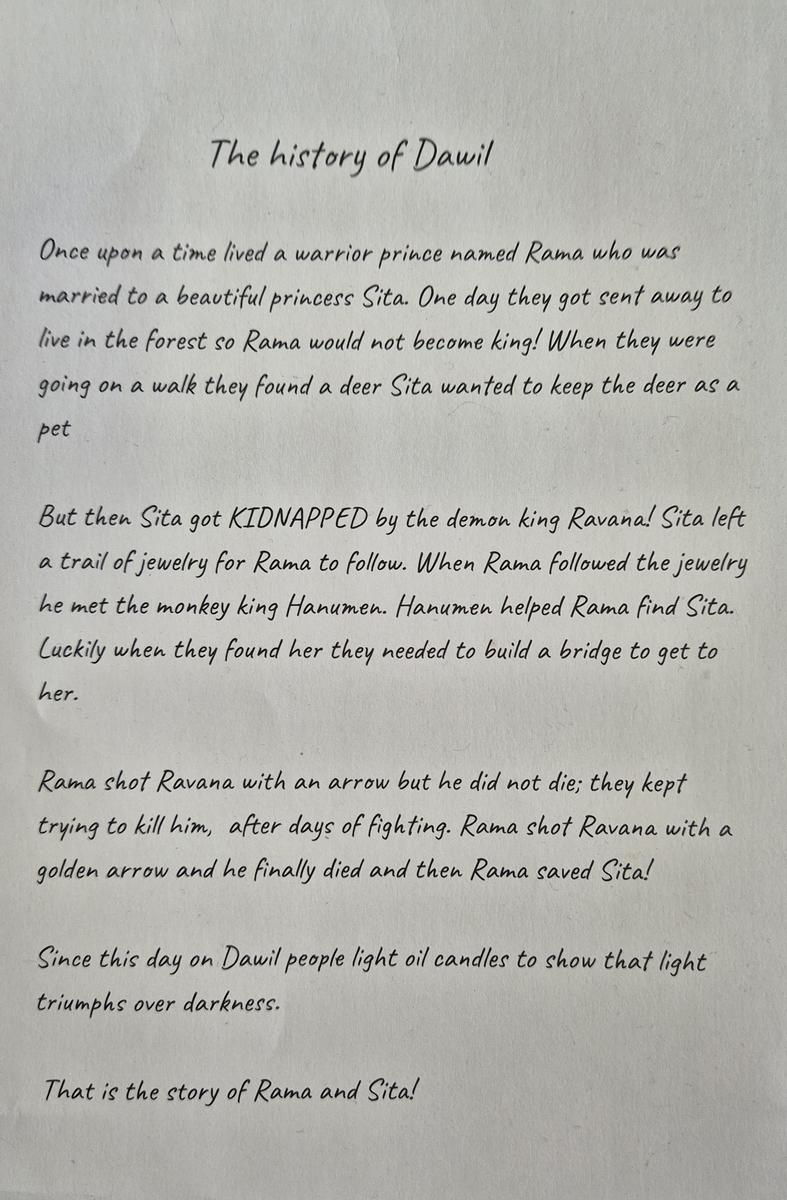 The history of Dawil
Once upon a time lived a warrior prince named Rama who was
married to a beautiful princess Sita. One day they got sent away to
live in the forest so Rama would not become king! When they were
going on a walk they found a deer Sita wanted to keep the deer as a
pet
But then Sita got KIDNAPPED by the demon king Ravana! Sita left
a trail of jewelry for Rama to follow. When Rama followed the jewelry
he met the monkey king Hanumen. Hanumen helped Rama find Sita.
Luckily when they found her they needed to build a bridge to get to
her.
Rama shot Ravana with an arrow but he did not die; they kept
trying to kill him,  after days of fighting. Rama shot Ravana with a
golden arrow and he finally died and then Rama saved Sita!
Since this day on Dawil people light oil candles to show that light
triumphs over darkness.
That is the story of Rama and Sita!